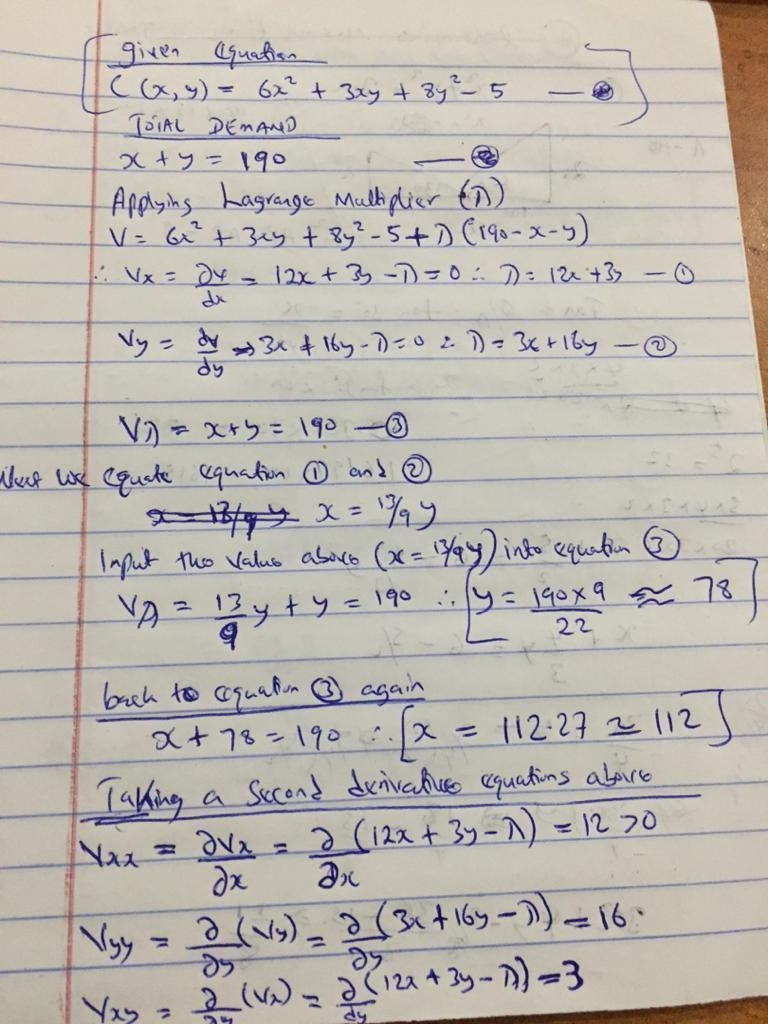 given equation
C(x,y) = 6x² + 3xy + 8y² - 5 —
TOTAL DEMAND
x + y = 190 —
Applying Lagrange Multiplier (λ)
V = 6x² + 3xy + 8y² - 5 + λ(190 - x - y)
∴ Vx = ∂v/dx = 12x + 3y - λ = 0 ∴ λ = 12x + 3y — ①
Vy = dv/dy → 3x + 16y - λ = 0 ∴ λ = 3x + 16y — ②
Vλ = x + y = 190 — ③
Next we equate equation ① and ②
x = 13/9 y x = 13/9 y
Input the value above (x = 13/9 y) into equation ③
Vλ = 13/9 y + y = 190 ∴ [y = 190 × 9/22 ≈ 78]
back to equation ③ again
x + 78 = 190 ∴ [x = 112.27 ≃ 112]
Taking a second derivatives equations above
Vxx = ∂Vx/∂x = ∂/∂x (12x + 3y - λ) = 12 > 0
Vyy = ∂/∂y (Vy) = ∂/∂y (3x + 16y - λ) = 16
Vxy = ∂/∂y (Vx) = ∂/dy (12x + 3y - λ) = 3